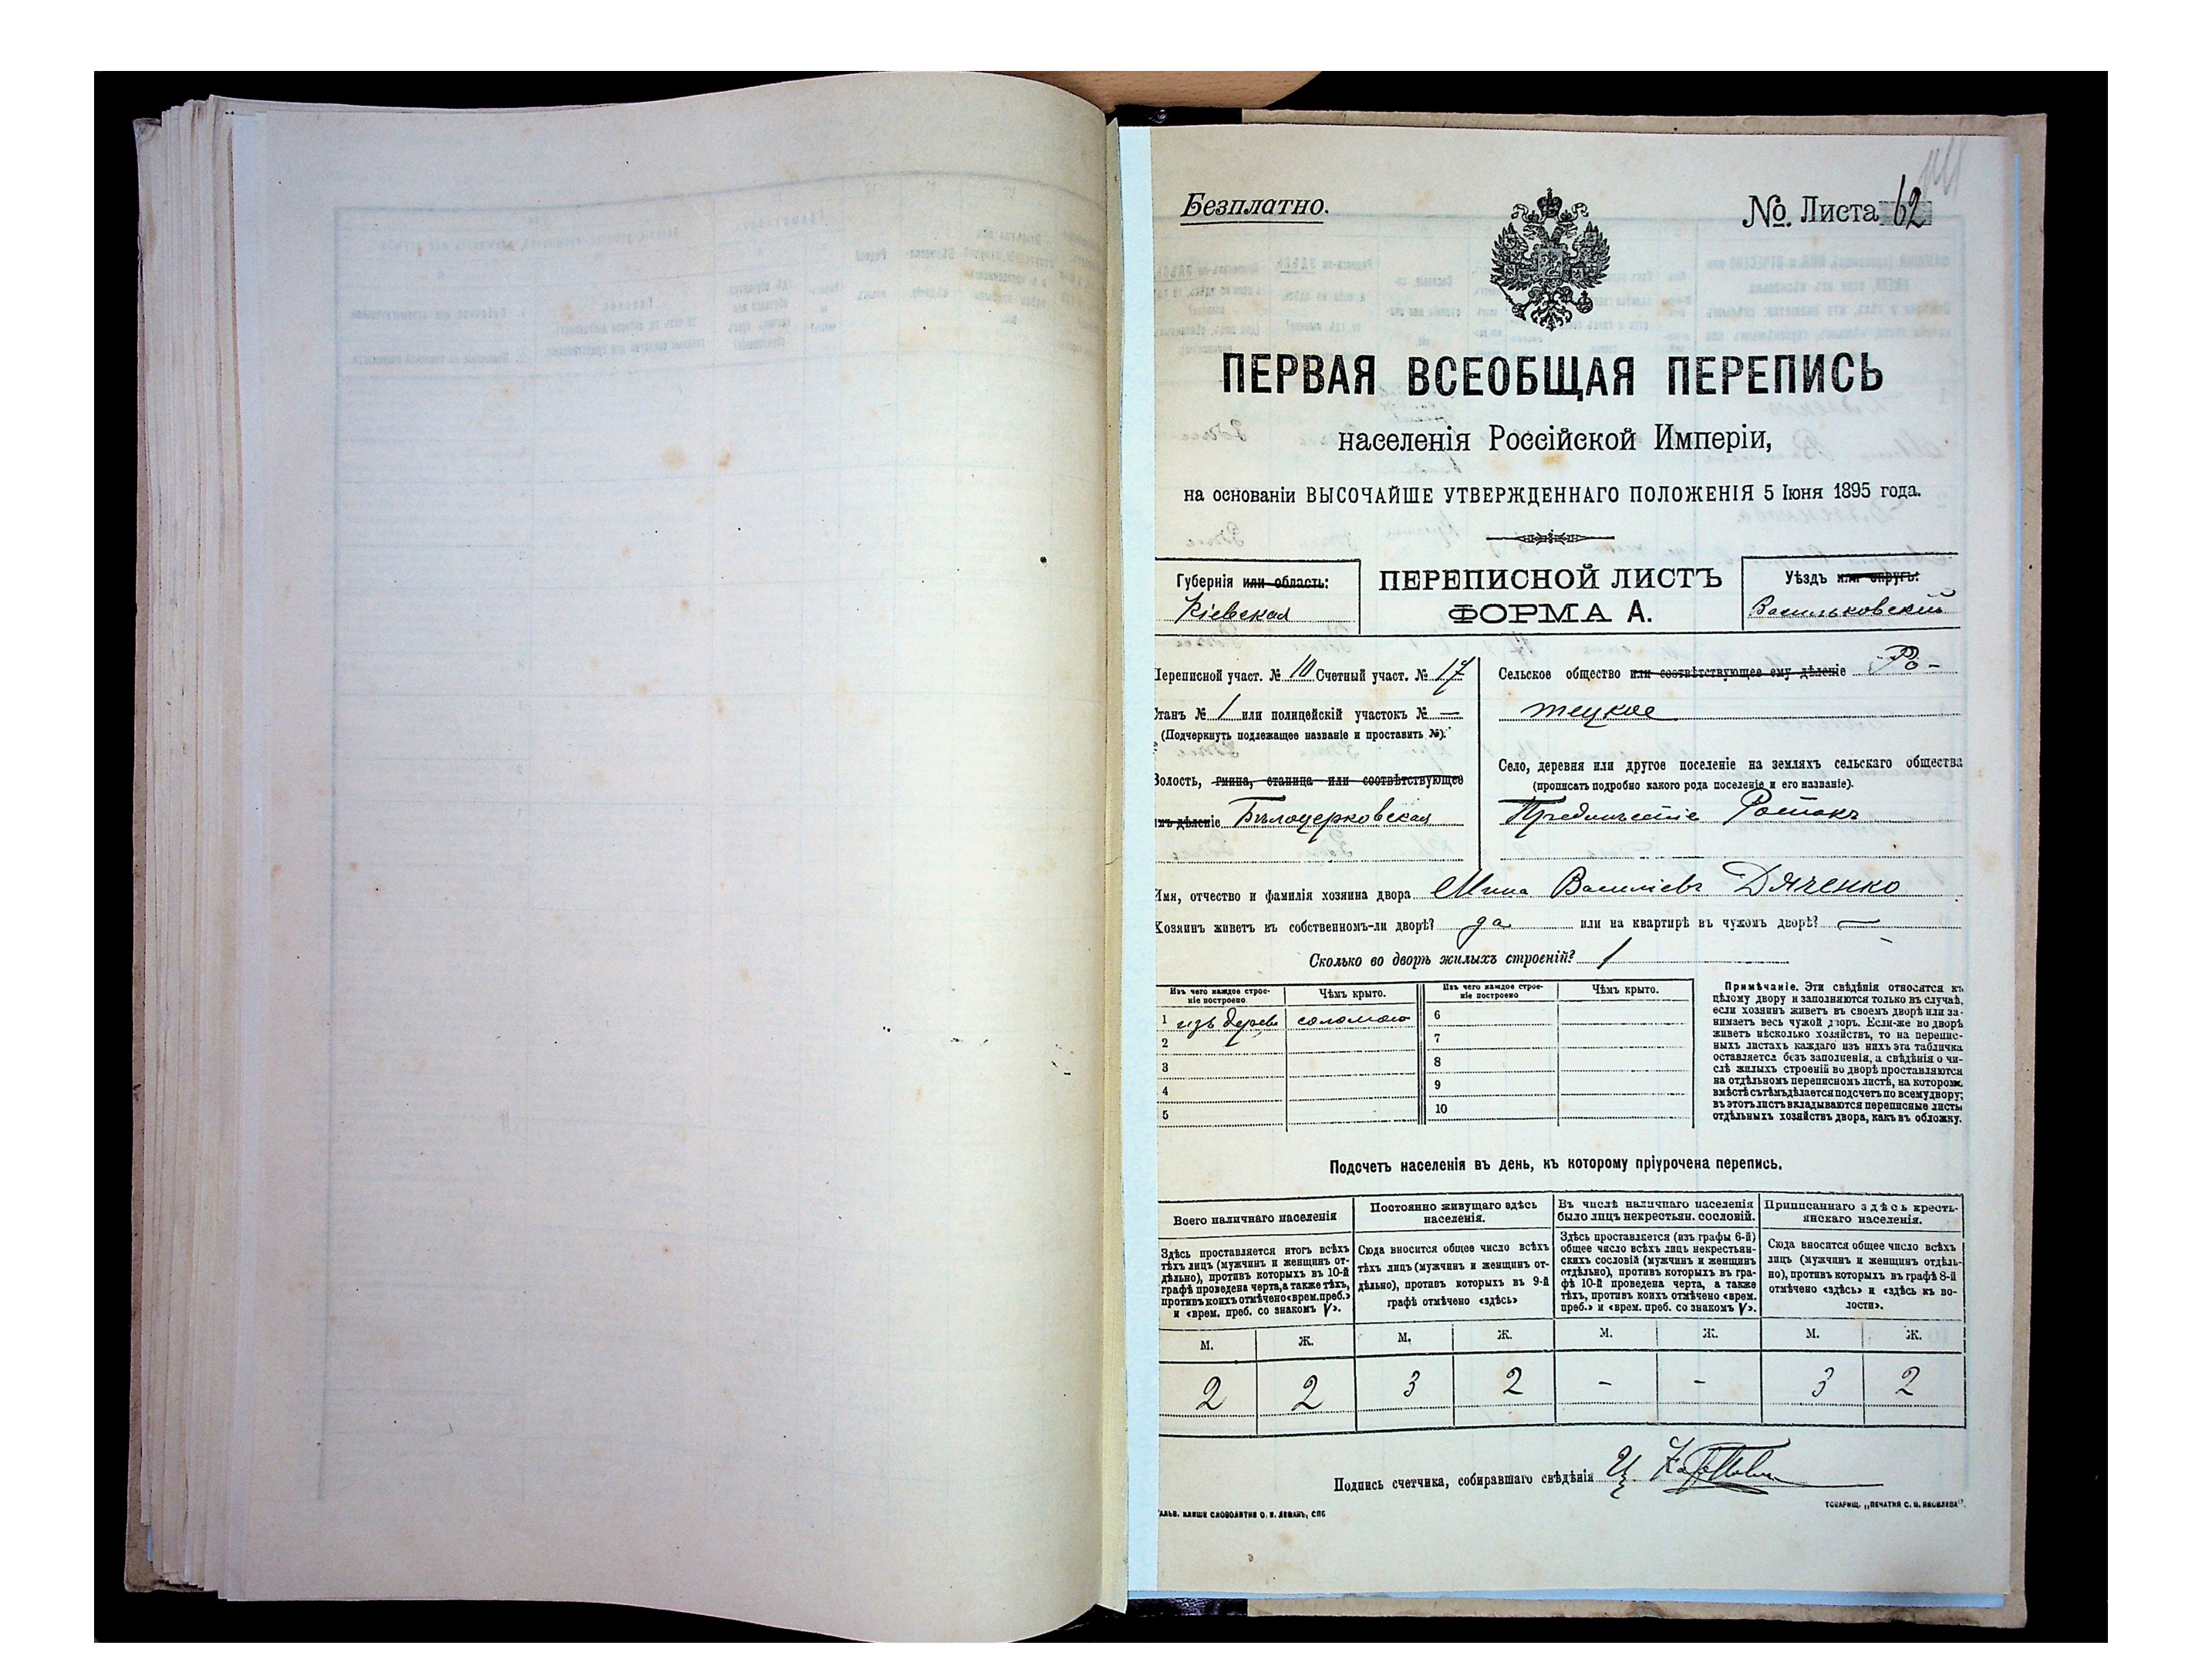 Безплатно.
№ Листа 62
ПЕРВАЯ ВСЕОБЩАЯ ПЕРЕПИСЬ
населенія Россійской Имперіи,
на основаніи ВЫСОЧАЙШЕ УТВЕРЖДЕННАГО ПОЛОЖЕНІЯ 5 Іюня 1895 года.
Губернія или область:
Кіевская
ПЕРЕПИСНОЙ ЛИСТЪ
ФОРМА А.
Уѣздъ или округъ:
Васильковскій
Переписной участ. № 10 Счетный участ. № 17
Станъ № 1 или полицейскій участокъ № —
(Подчеркнуть подлежащее названіе и проставить №).
Волость, гмина, станица или соотвѣтствующее
имъ дѣленіе Бѣлоцерковская
Сельское общество или соотвѣтствующее ему дѣленіе Ро-
тецкое
Село, деревня или другое поселеніе на земляхъ сельскаго общества
(прописать подробно какого рода поселеніе и его названіе).
Предмѣстіе Ротокъ
Имя, отчество и фамилія хозяина двора Мина Василіевъ Дяченко
Хозяинъ живетъ въ собственномъ-ли дворѣ? да или на квартирѣ въ чужомъ дворѣ? —
Сколько во дворѣ жилыхъ строеній? 1
Изъ чего каждое строе-
ніе построено
Чѣмъ крыто.
Изъ чего каждое строе-
ніе построено
Чѣмъ крыто.
1 изъ дерева соломою
2
3
4
5
6
7
8
9
10
Примѣчаніе. Эти свѣдѣнія относятся къ
цѣлому двору и заполняются только въ случаѣ,
если хозяинъ живетъ въ своемъ дворѣ или за-
нимаетъ весь чужой дворъ. Если-же во дворѣ
живетъ нѣсколько хозяйствъ, то на перепис-
ныхъ листахъ каждаго изъ нихъ эта табличка
оставляется безъ заполненія, а свѣдѣнія о чи-
слѣ жилыхъ строеній во дворѣ проставляются
на отдѣльномъ переписномъ листѣ, на которомъ
вмѣстѣ съ тѣмъ дѣлается подсчетъ по всему двору;
въ этотъ листъ вкладываются переписные листы
отдѣльныхъ хозяйствъ двора, какъ въ обложку.
Подсчетъ населенія въ день, къ которому пріурочена перепись.
Всего наличнаго населенія
Здѣсь проставляется итогъ всѣхъ
тѣхъ лицъ (мужчинъ и женщинъ от-
дѣльно), противъ которыхъ въ 10-й
графѣ проведена черта, а также тѣхъ,
противъ коихъ отмѣчено «врем. преб.»
и «врем. преб. со знакомъ V».
Постоянно живущаго здѣсь
населенія.
Сюда вносится общее число всѣхъ
тѣхъ лицъ (мужчинъ и женщинъ от-
дѣльно), противъ которыхъ въ 9-й
графѣ отмѣчено «здѣсь»
Въ числѣ наличнаго населенія
было лицъ некрестьян. сословій.
Здѣсь проставляется (изъ графы 6-й)
общее число всѣхъ лицъ некрестьян-
скихъ сословій (мужчинъ и женщинъ
отдѣльно), противъ которыхъ въ гра-
фѣ 10-й проведена черта, а также
тѣхъ, противъ коихъ отмѣчено «врем.
преб.» и «врем. преб. со знакомъ V».
Приписаннаго здѣсь кресть-
янскаго населенія.
Сюда вносится общее число всѣхъ
лицъ (мужчинъ и женщинъ отдѣль-
но), противъ которыхъ въ графѣ 8-й
отмѣчено «здѣсь» и «здѣсь къ во-
лости».
М. Ж. М. Ж. М. Ж. М. Ж.
2 2 3 2 - - 3 2
Подпись счетчика, собиравшаго свѣдѣнія
КЛИШЕ СЛОВОЛИТНИ О. И. ЛЕМАНЪ, СПБ
ТОВАРИЩ. „ПЕЧАТНЯ С. П. ЯКОВЛЕВА".